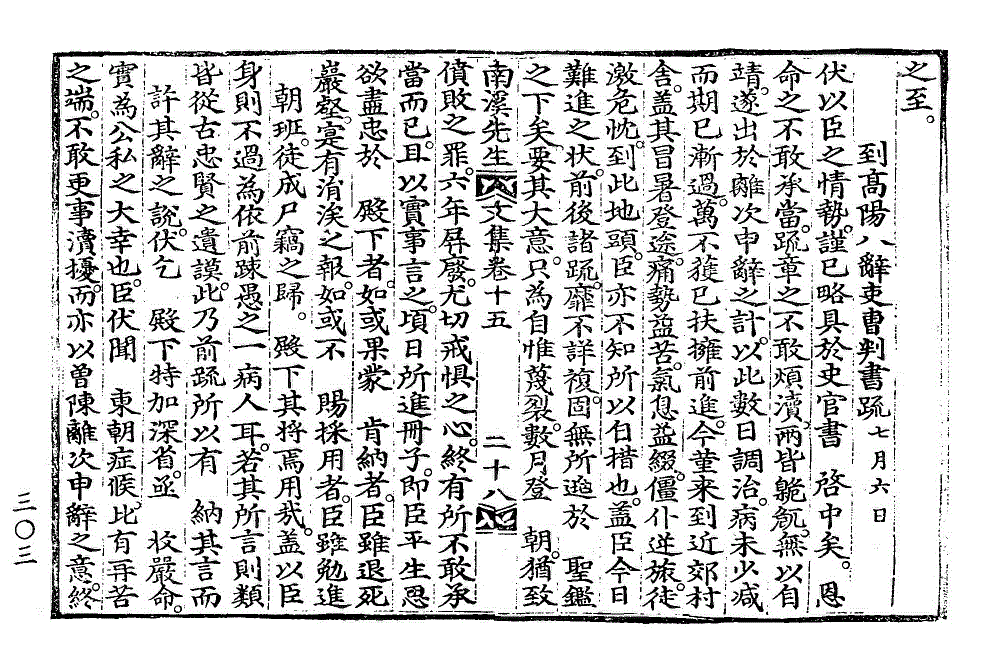 之至。
到高陽八辭吏曹判書疏 七月六日
伏以臣之情勢。謹已略具於史官書 啓中矣。恩
命之不敢承當。疏章之不敢煩瀆。兩皆臲卼。無以自
靖。遂出於離次申辭之計。以此數日調治。病未少减
而期已漸過。萬不獲已扶擁前進。今菫来到近郊村
舎。盖其冒暑登途。痛勢益苦。氣息益綴。僵仆逆旅。徒
激危忱。到此地頭。臣亦不知所以自措也。盖臣今日
難進之状。前後諸疏。靡不詳複。固無所逃於 聖鑑
之下矣。要其大意。只為自惟蔑裂。數月登 朝。猶致
南溪先生文集卷十五 二十八
僨敗之罪。六年屛廢。尤切戒惧之心。終有所不敢承
當而已。且以實事言之。頃日所進冊子。即臣平生思
欲盡忠於 殿下者。如或果蒙 肯納者。臣雖退死
巖壑。寔有涓涘之報。如或不 賜採用者。臣雖勉進
朝班。徒成尸竊之歸。 殿下其将焉用㢤。盖以臣
身則不過為依前踈愚之一病人耳。若其所言則類
皆從古忠賢之遺謨。此乃前疏所以有 納其言而
許其辭之說。伏乞 殿下特加深省。亟 收嚴命。
實為公私之大幸也。臣伏聞 東朝症候。比有苒苦
之端。不敢更事瀆擾。而亦以曽陳離次申辭之意。終
三〇三